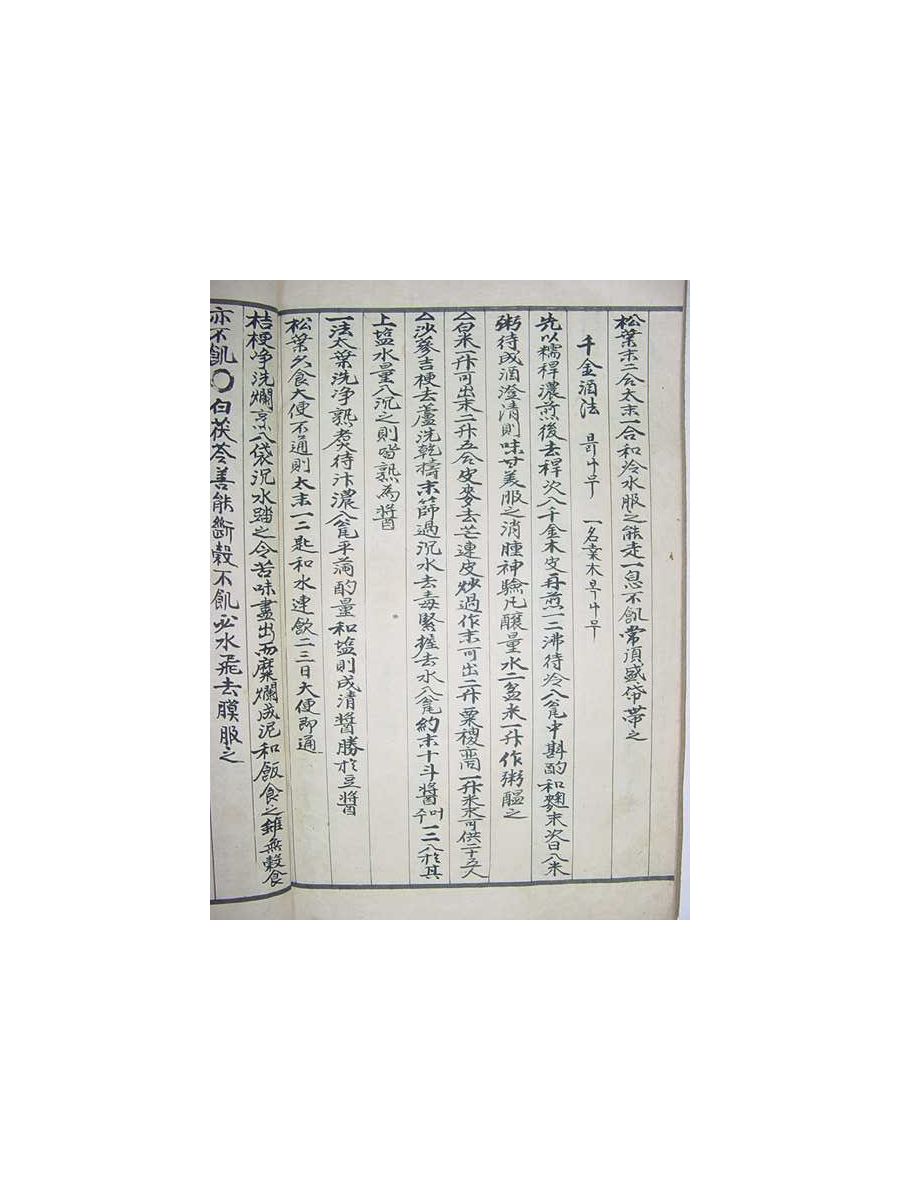 松葉末二合太末一合和冷水服之能走一息不飢常須盛帒帶之
千金酒法 븍나무 一名業木북나무
先以糯稈濃煎後去稈次八千金木皮再煎一二沸待冷八瓮中斟酌和麴末次日八米
粥待成酒澄清則味甘美服之消腫神驗凡釀量水二盆米一升作粥醞之
白米一升可出末二升五合皮麥去芒連皮炒過作末可出二升粟稷 一升米末可供二十五人
沙蔘吉梗去蘆洗乾擣末篩過沉水去毒緊握去水八瓮約末十斗醬 一二八於其
上塩水量八沉之則皆熟為醬
一法太葉洗净熟煮待汁濃八瓮平滿酌量和塩則成清醬勝於豆醬
松葉久食大便不通則太末一二匙和水連飲二三日大便即通
桔梗净洗爛烹八袋沉水踏之令苦味盡出而糜爛成泥和飯食之雖無穀食
亦不飢〇白茯苓善能斷穀不飢必水飛去膜服之